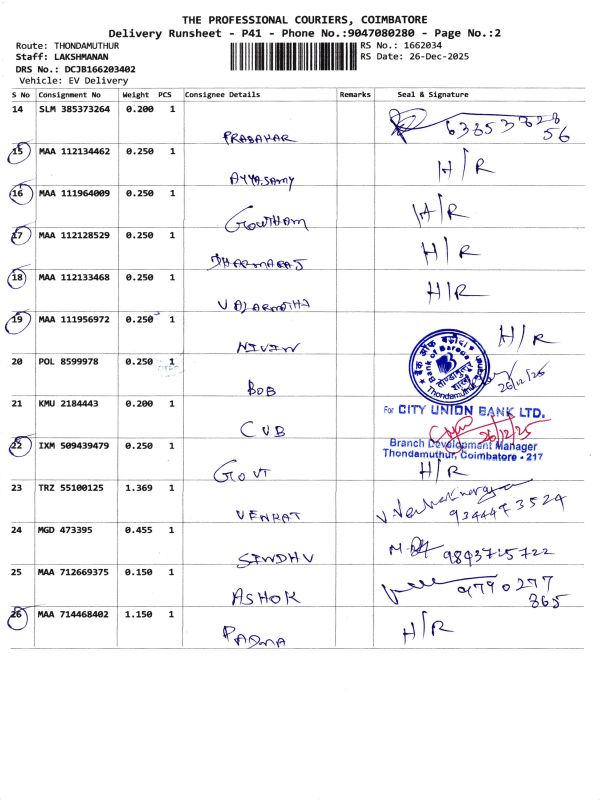 THE PROFESSIONAL COURIERS, COIMBATORE
Delivery Runsheet - P41 - Phone No.:9047080280 - Page No.:2
Route: THONDAMUTHUR
RS No.: 1662034
Staff: LAKSHMANAN
RS Date: 26-Dec-2025
DRS No.: DCJB166203402
Vehicle: EV Delivery
S No Consignment No Weight PCS Consignee Details Remarks Seal & Signature
14 SLM 385373264 0.200 1 PRABAHAR 63853 7828
56
15 MAA 112134462 0.250 1 AYYASAMY H/R
16 MAA 111964009 0.250 1 GOUTHAM H/R
17 MAA 112128529 0.250 1 DHARMARAJ H/R
18 MAA 112133468 0.250 1 VALARMATHI H/R
19 MAA 111956972 0.250 1 NIVIN H/R
20 POL 8599978 0.250 1 BOB
बैंक ऑफ़ बड़ौदा
Bank of Baroda
Thondamuthur
26/12/25
21 KMU 2184443 0.200 1 CUB
For CITY UNION BANK LTD.
26/12/25
Branch Development Manager
Thondamuthur, Coimbatore - 217
22 IXM 509439479 0.250 1 GOVT H/R
23 TRZ 55100125 1.369 1 VENKAT
9344473524
24 MGD 473395 0.455 1 SINDHU 9843715722
25 MAA 712669375 0.150 1 ASHOK 9790277
865
26 MAA 714468402 1.150 1 PADMA H/R